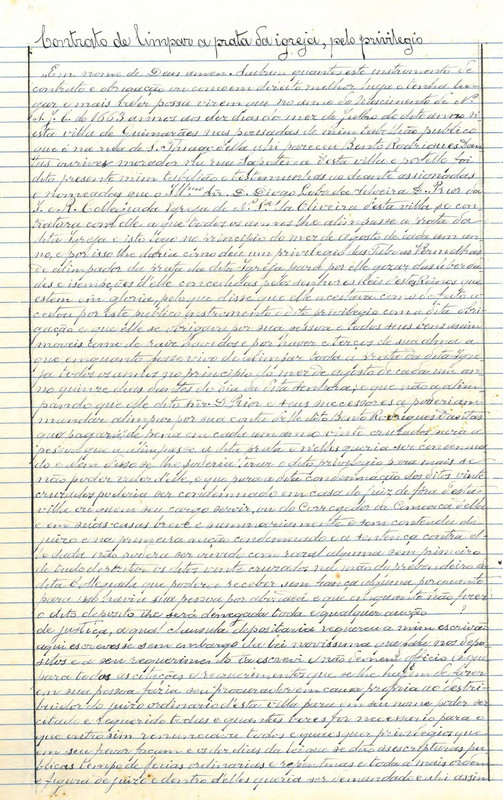 Contrato de limpar a prata da igreja, pelo privilegio
"Em nome de Deus amen. Saibam quantos este instrumento de
contrato e obrigação ou como em direito melhor haja e tenha lu-
gar e mais valer possa virem que no anno do Nascimento de N.
S. J. C. de 1663 annos aos dez dias do mez de julho do dito anno n'
esta villa de Guimarães nas pousadas de mim tabellião publico
que é na rua de S. Thiago d'ella ahi pareceu Bento Rodrigues Dan-
tas ourives morador na rua Sapateira d'esta villa e por elle foi
dito presente mim tabellião e testemunhas ao deante assignadas
e nomeadas que o Ill.mo Snr. D. Diogo Lobo da Silveira D. Prior da
I. e R. Collegiada Igreja de N. Sra. da Oliveira d'esta villa se con-
tratara com elle a que todos os annos lhe alimpasse a prata da
dita Igreja e isto logo no principio do mez de agosto de cada um an-
no, e por isso lhe daria como deu um privilegio das Tabuas Vermelhas
de alimpador da prata da dita Igreja para por elle gozar das liberda-
des e isempções n'elle concedidas pelos senhores Reis d'estes Reinos que
estão em gloria, pelo que disse que elle aceitava como de feito a-
ceitou por este publico instrumento o dito privilegio com a dita obri-
gação e que elle se obrigou por sua pessoa e todos seus bens assim
moveis como de raiz havidos e por haver e terços de sua alma a
que emquanto possa vivo de alimpar toda a prata da dita Igre-
ja todos os annos no principio do mez de agosto de cada um an-
no quinze dias antes do dia da dita Senhora, e que não a alim-
pando que elle dito snr. D. Prior e seus successores a poderiam
mandar alimpar por sua conta d'elle dito Bento Rodrigues Dantas
que pagará de pena em cada um anno vinte cruzados para a
pessoa que a alimpasse a dita prata e n'elles queria ser condemna-
do e alem d'isso se lhe poderia tirar o dito privilegio para mais se
não poder valer d'elle, e que para a dita condemnação dos ditos vinte
cruzados poderia ser condemnado em casa do juiz de fóra d'esta
villa ou quem seu cargo servir, ou do Corregedor da Comarca d'ella
e em suas casas breve e summariamente e sem contenda de
juizo e na primeira audiencia condemnado e a sentença contra el-
le dada não poderá ser ouvido com razal alguma sem primeiro
de tudo depositar os ditos vinte cruzados na mão do prebendeiro da
dita Collegiada que poderá receber sem fiança alguma porquanto
para isso havia sua pessoa por abonada e que emquanto não fizer
o dito deposito lhe será denegada toda e qualquer aução ?
de justiça, a qual clausula depositaria requereu a mim escrivão
aqui escrevesse sem embargo da lei novissima que fala nos depo-
sitos e a seu requerimento a escrevi e não de meu officio e que
para todas as citações e requerimentos que se lhe hajam de fazer
em sua pessoa fazia seu procurador em causa propria ao destri-
buidor do juizo ordinario d'esta villa para em seu nome poder ser
citado e requerido todas e quantas vezes for necessario para o
que outro sim renunciava todos e quaesquer privilegios que
em seu favor façam e os dez dias da lei que se dão as escripturas pu-
blicas tempo de ferias ordinarias e repentinas e toda a mais ordem
e figura de juizo e dentro d'elles queria ser demandado e ahi assim